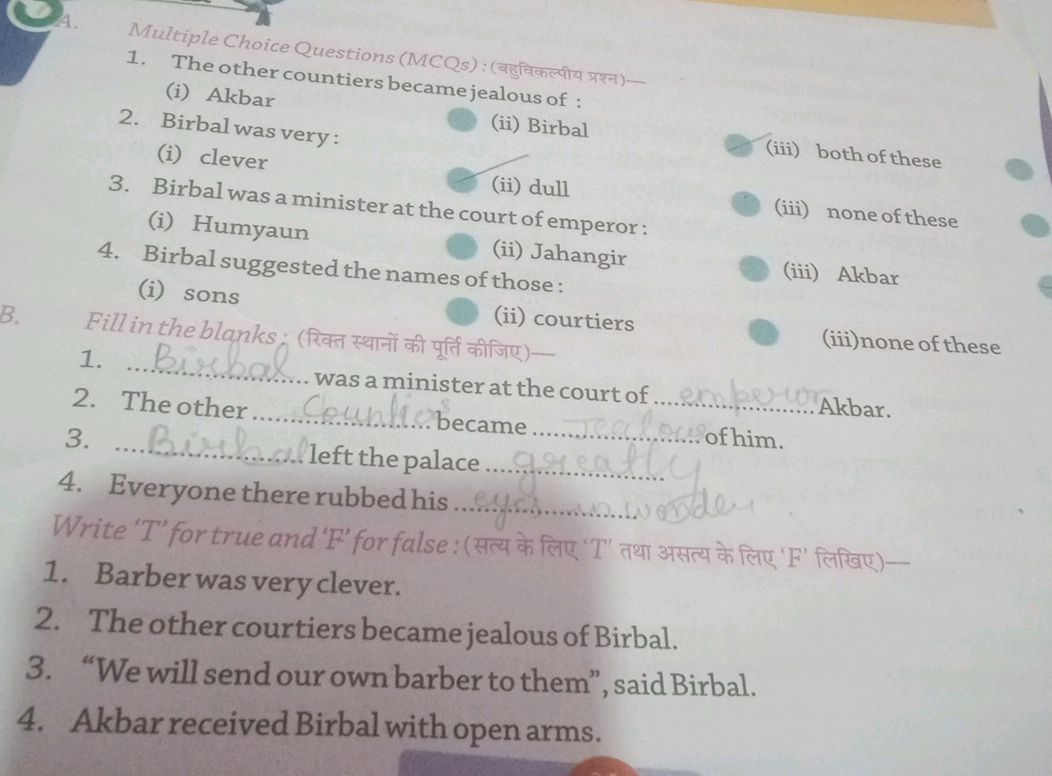 A. Multiple Choice Questions (MCQs) : (बहुविकल्पीय प्रश्न)—
1. The other countiers became jealous of :
(i) Akbar (ii) Birbal (iii) both of these
2. Birbal was very :
(i) clever (ii) dull (iii) none of these
3. Birbal was a minister at the court of emperor :
(i) Humyaun (ii) Jahangir (iii) Akbar
4. Birbal suggested the names of those :
(i) sons (ii) courtiers (iii)none of these
B. Fill in the blanks : (रिक्त स्थानों की पूर्ति कीजिए)—
1. Birbal was a minister at the court of emperor Akbar.
2. The other Counties became Jealous of him.
3. Birbal left the palace greatly
4. Everyone there rubbed his eyes in wonder
Write 'T' for true and 'F' for false : (सत्य के लिए 'T' तथा असत्य के लिए 'F' लिखिए)—
1. Barber was very clever.
2. The other courtiers became jealous of Birbal.
3. “We will send our own barber to them”, said Birbal.
4. Akbar received Birbal with open arms.